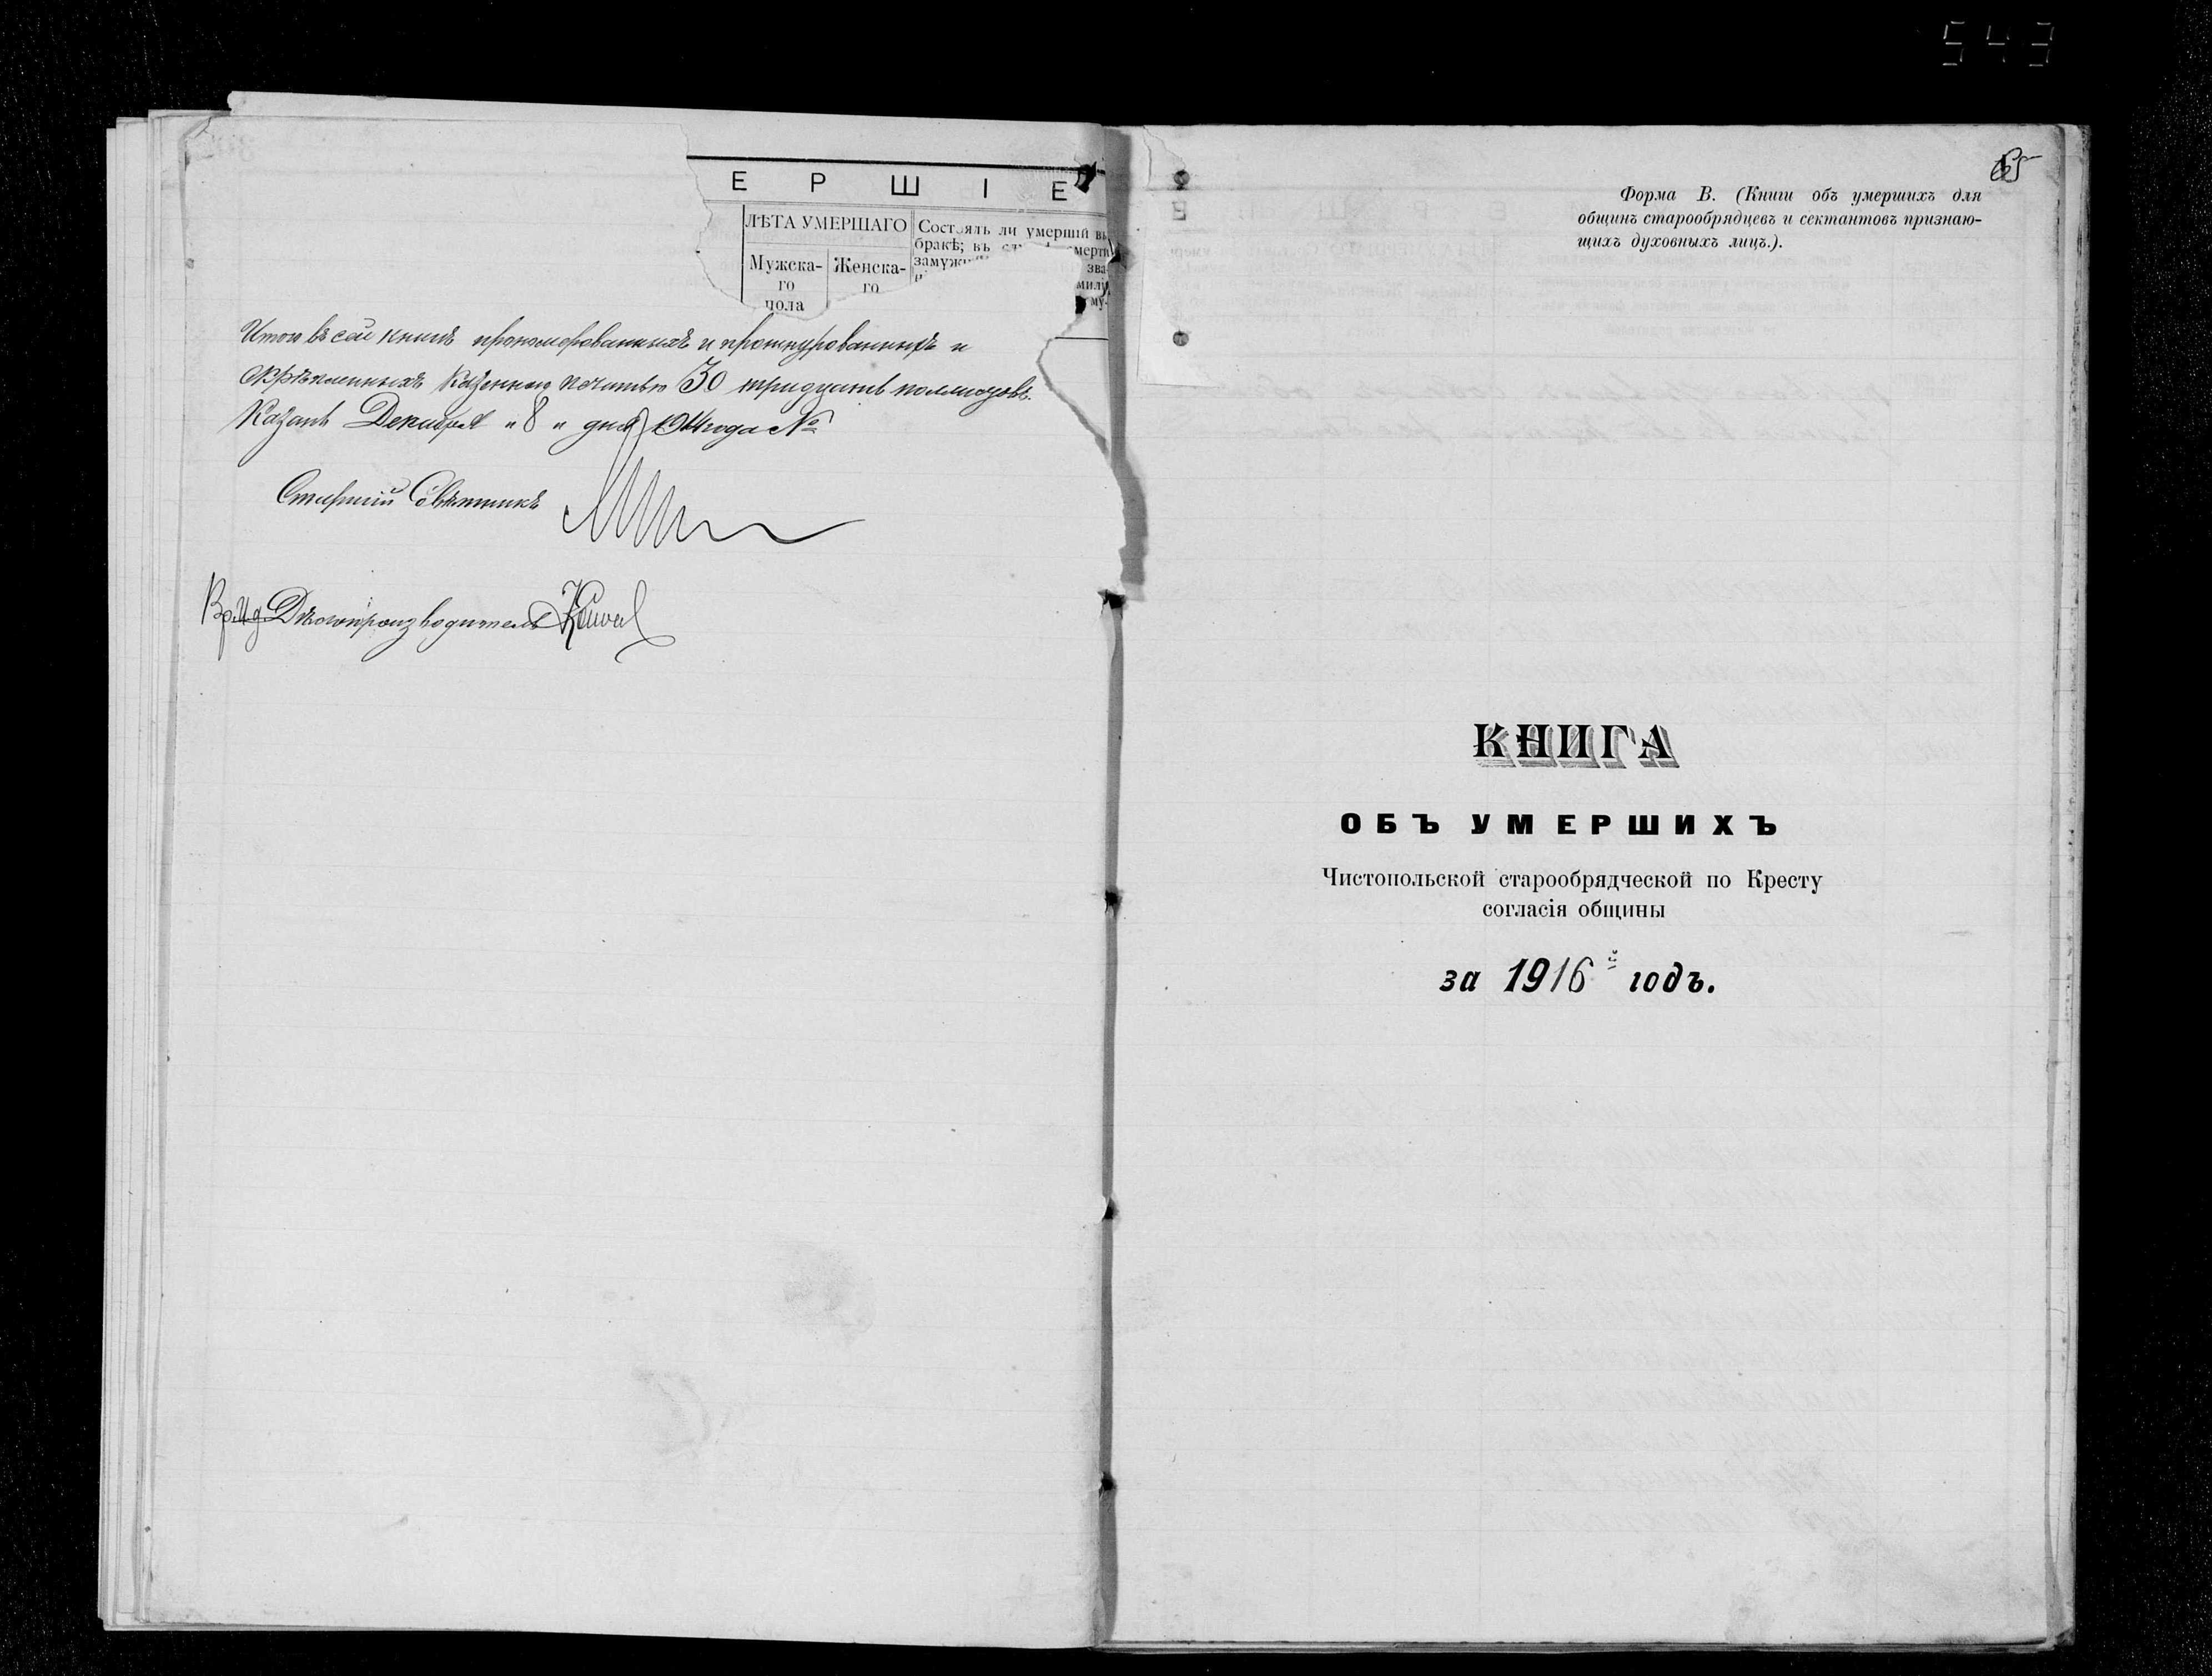 543
Е Р Ш І Е
ЛѢТА УМЕРШАГО
Мужска-
го
пола
Женска-
го
Состоялъ ли умершій въ
бракѣ; въ
замуж
Итого въ сей книгѣ пронумерованныхъ и прошнурованныхъ и
скрѣпленныхъ казенною печатью 30 тридцать полулистовъ.
Казань Декабря "8" дня 1914 года №
Старшій Совѣтникъ
Вр. И. д. Дѣлопроизводителя
65
Форма В. (Книги объ умершихъ для
общинъ старообрядцевъ и сектантовъ признаю-
щихъ духовныхъ лицъ.).
КНИГА
ОБЪ УМЕРШИХЪ
Чистопольской старообрядческой по Кресту
согласія общины
за 1916й годъ.